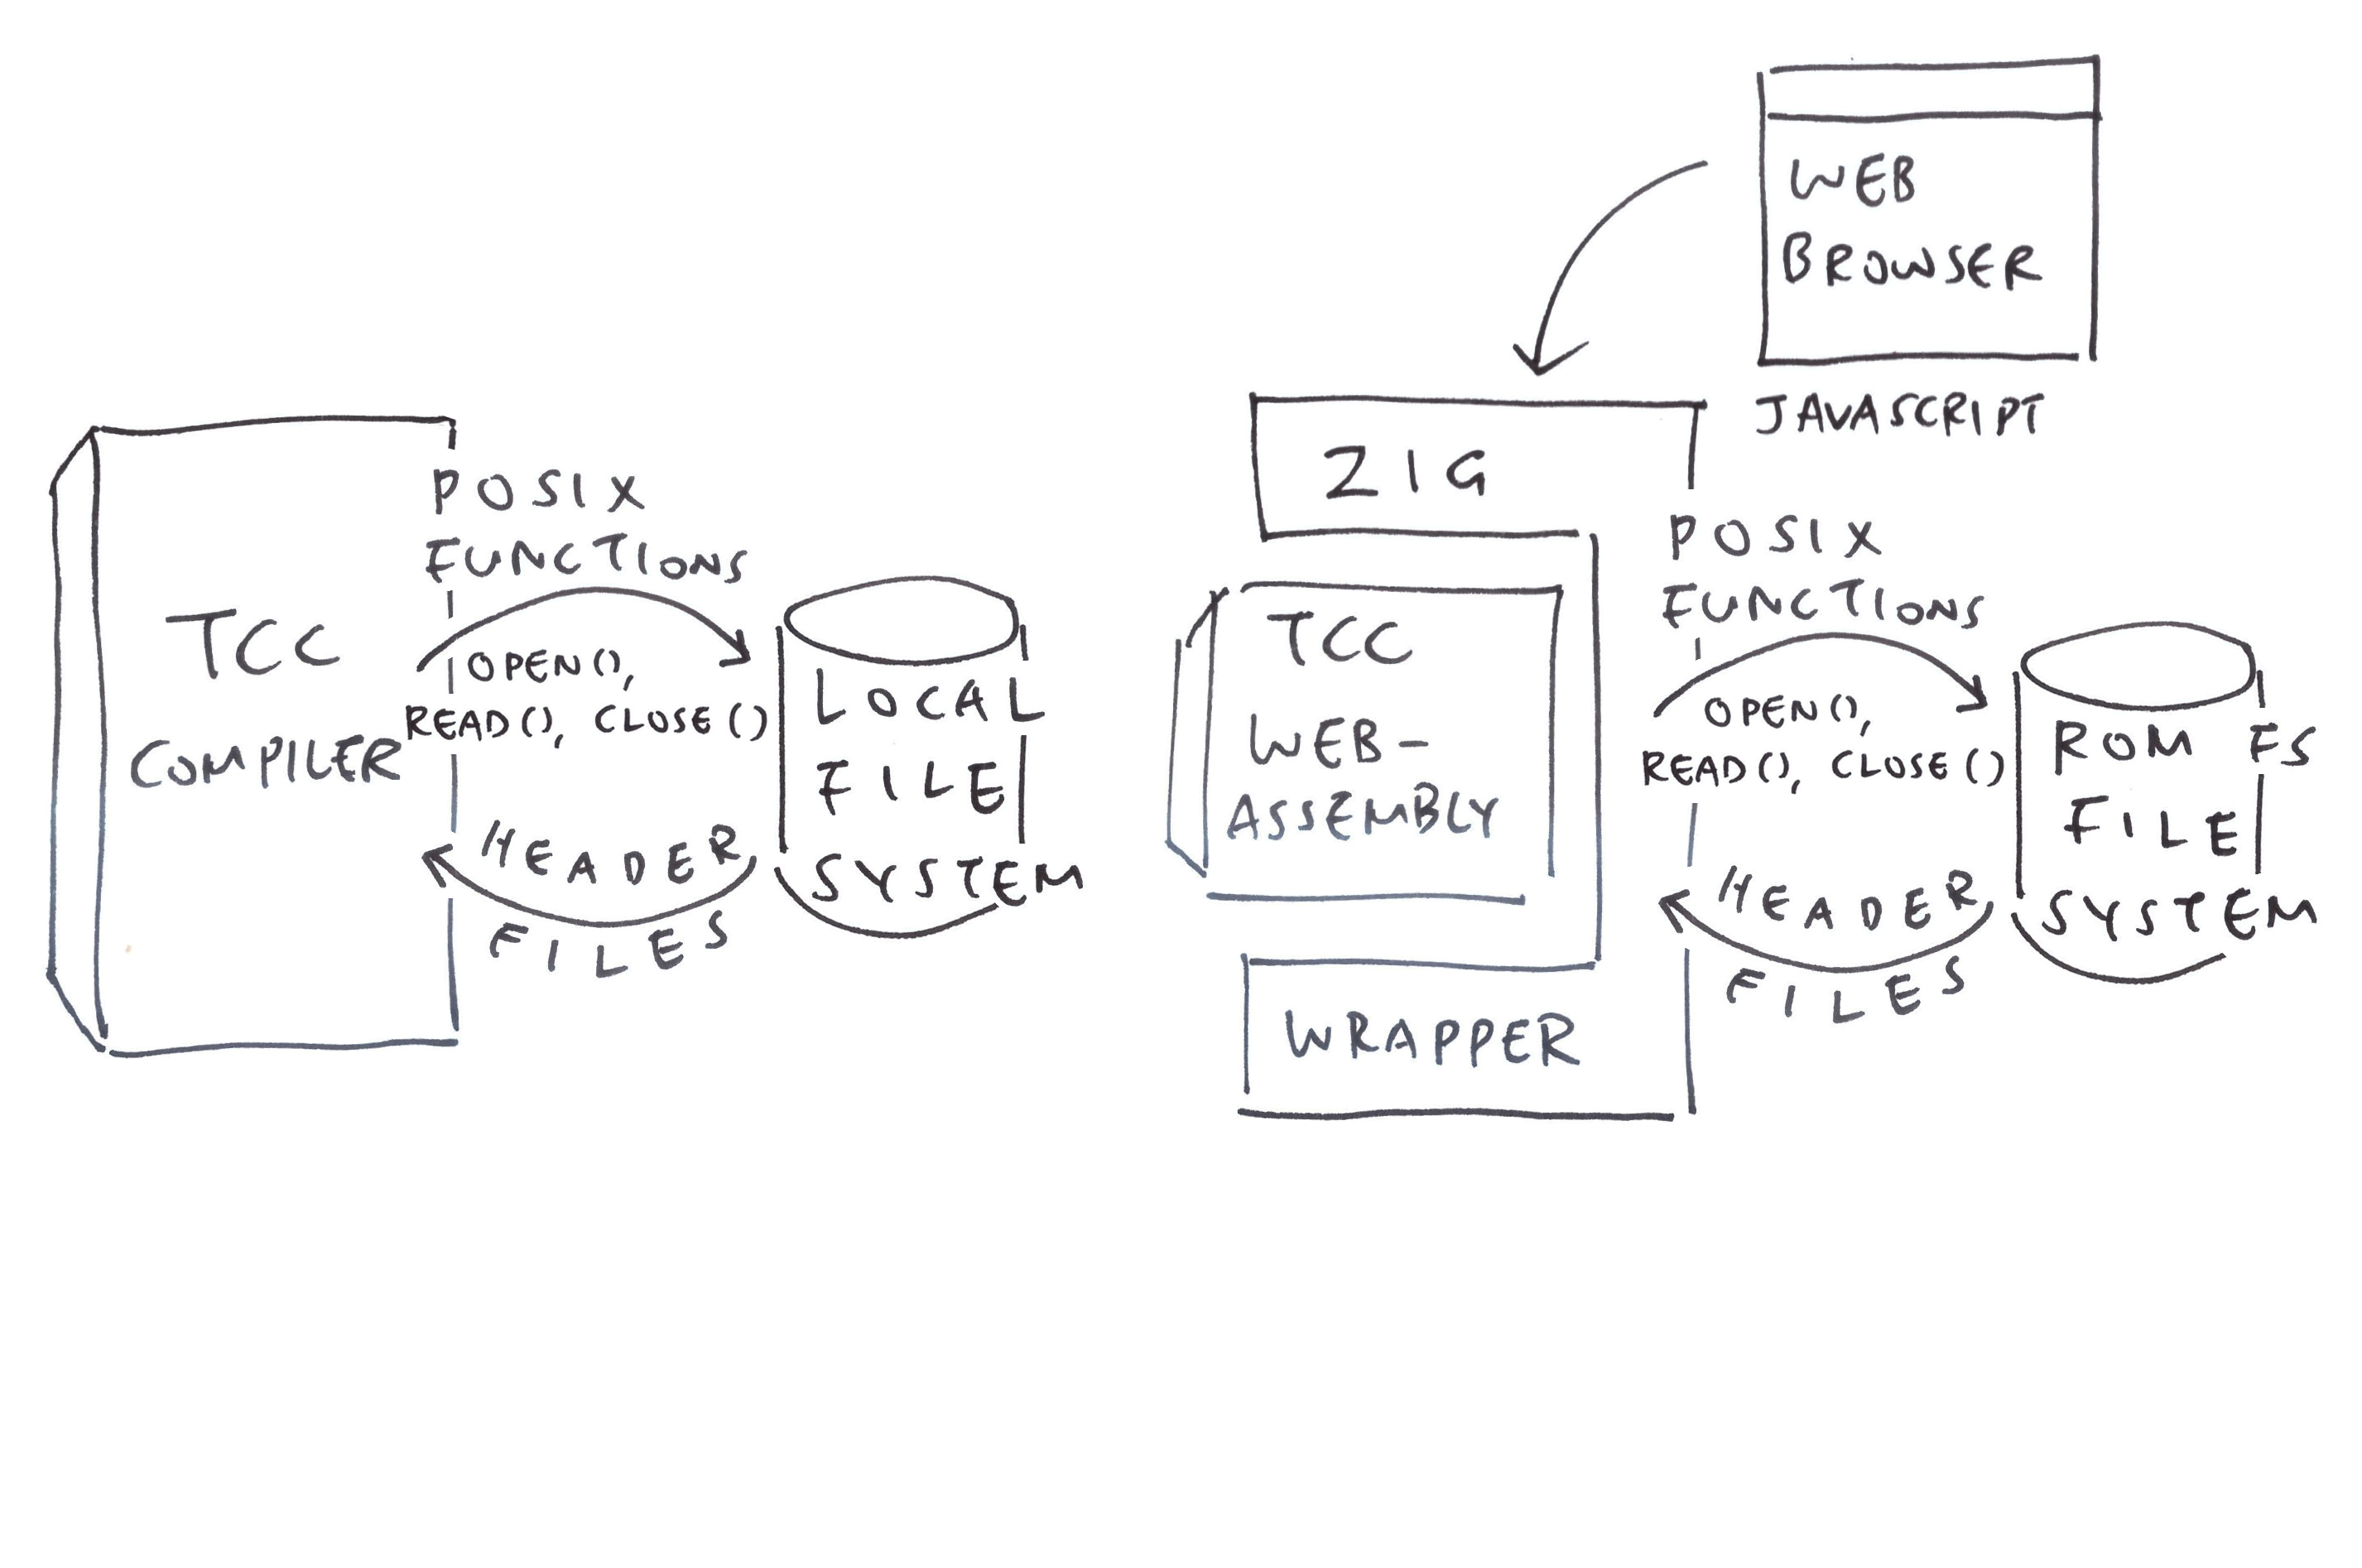 TCC
COMPILER
POSIX
FUNCTIONS
OPEN(),
READ(), CLOSE()
HEADER
FILES
LOCAL
FILE
SYSTEM
WEB
BROWSER
JAVASCRIPT
ZIG
TCC
WEB-
ASSEMBLY
WRAPPER
POSIX
FUNCTIONS
OPEN(),
READ(), CLOSE()
HEADER
FILES
ROM FS
FILE
SYSTEM